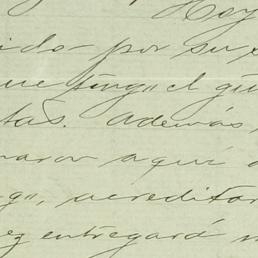 Hoy
ido por su
que ling" el gu
tas. además,
naron aquí
g", acreditar
ez entregará